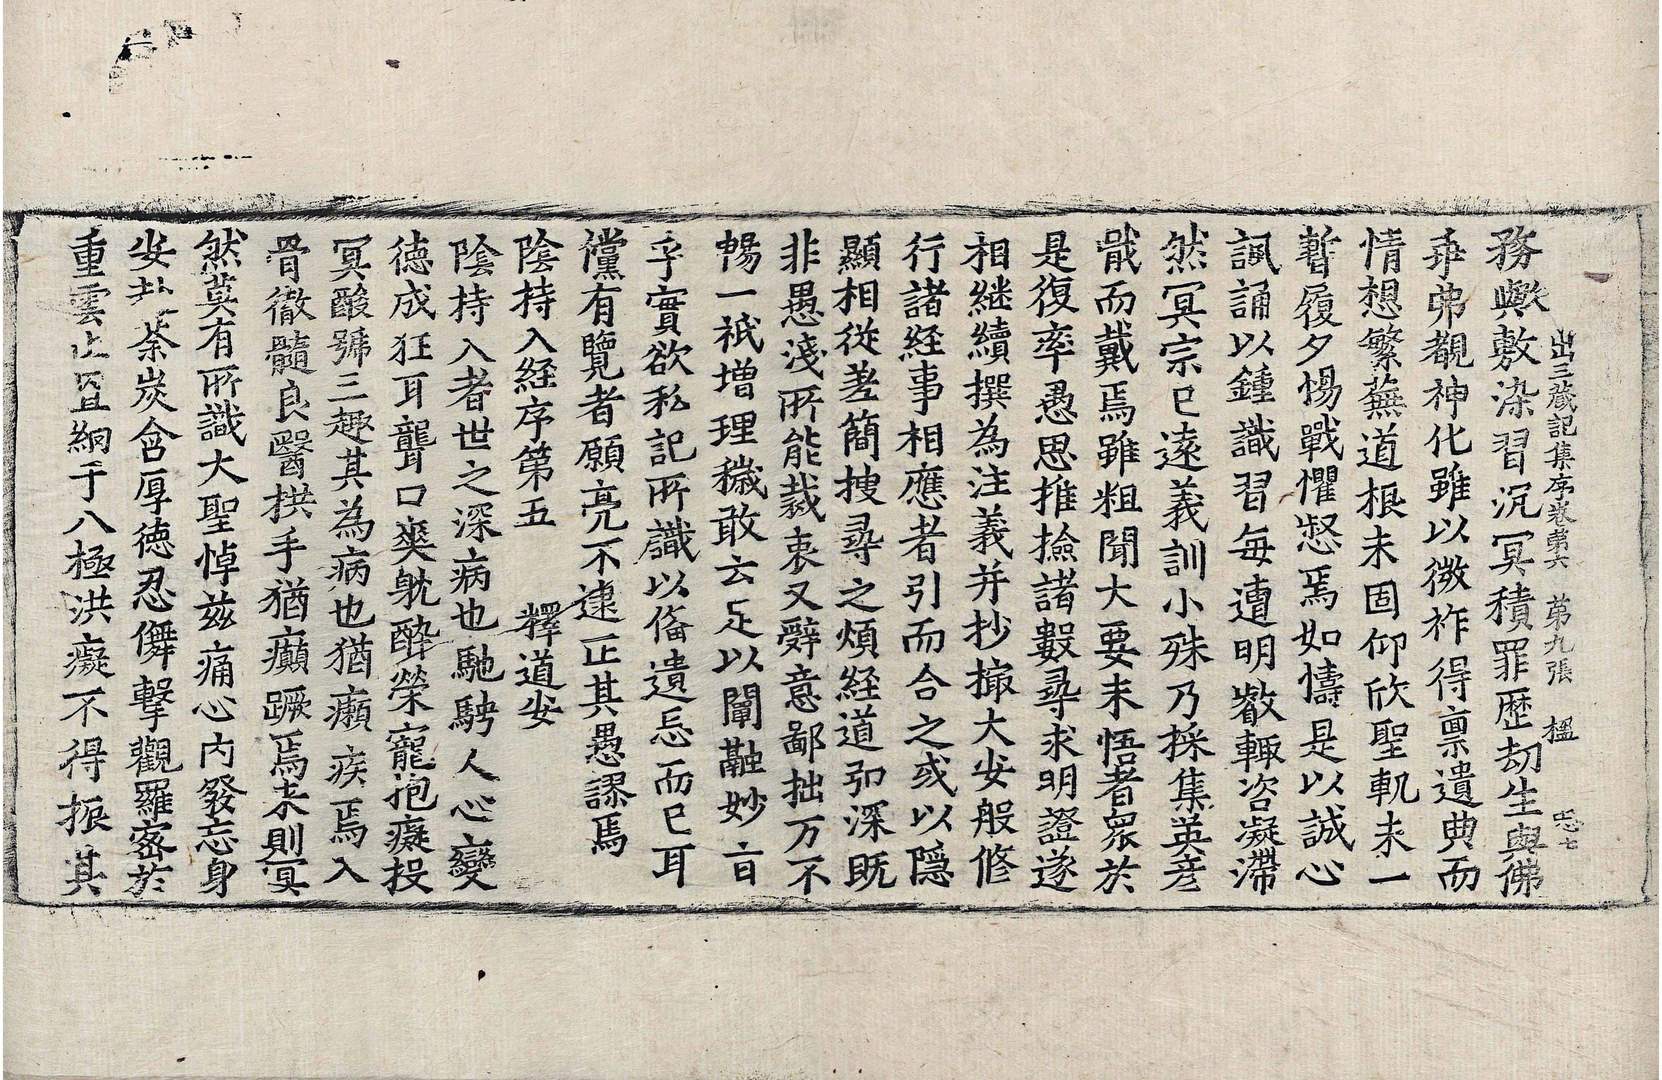 務輿敷染習沉冥積罪歷劫生與佛
乖弗覩神化雖以微祚得稟遺典而
情想繁蕪道根未固仰欣聖軌未一
暫履夕惕戰懼愸焉如懤是以誠心
諷誦以鍾識習每遭明叡輒咨凝滯
然冥宗已遠義訓小殊乃採集英彥
戢而戴焉雖粗聞大要未悟者眾於
是復率愚思推撿諸數尋求明證遂
相継續撰為注義并抄撮大安般修
行諸経事相應者引而合之或以隱
顯相從差簡搜尋之煩経道弘深既
非愚淺所能裁衷又辭意鄙拙万不
暢一祇增理穢敢云足以闡融妙旨
乎實欲私記所識以俻遺忘而已耳
儻有覽者願亮不逮正其愚謬焉
陰持入経序第五　釋道安
陰持入者世之深病也馳騁人心變
德成狂耳聾口爽躭醉榮寵抱癡投
冥酸號三趣其為病也猶癩疾焉入
骨徹髓良醫拱手猶癲蹶焉来則冥
然莫有所識大聖悼兹痛心内發忘身
安赴荼炭含厚德忍侮擊觀羅密於
重雲止置網于八極洪癡不得振其
出三蔵記集序卷第六　第九張　楹